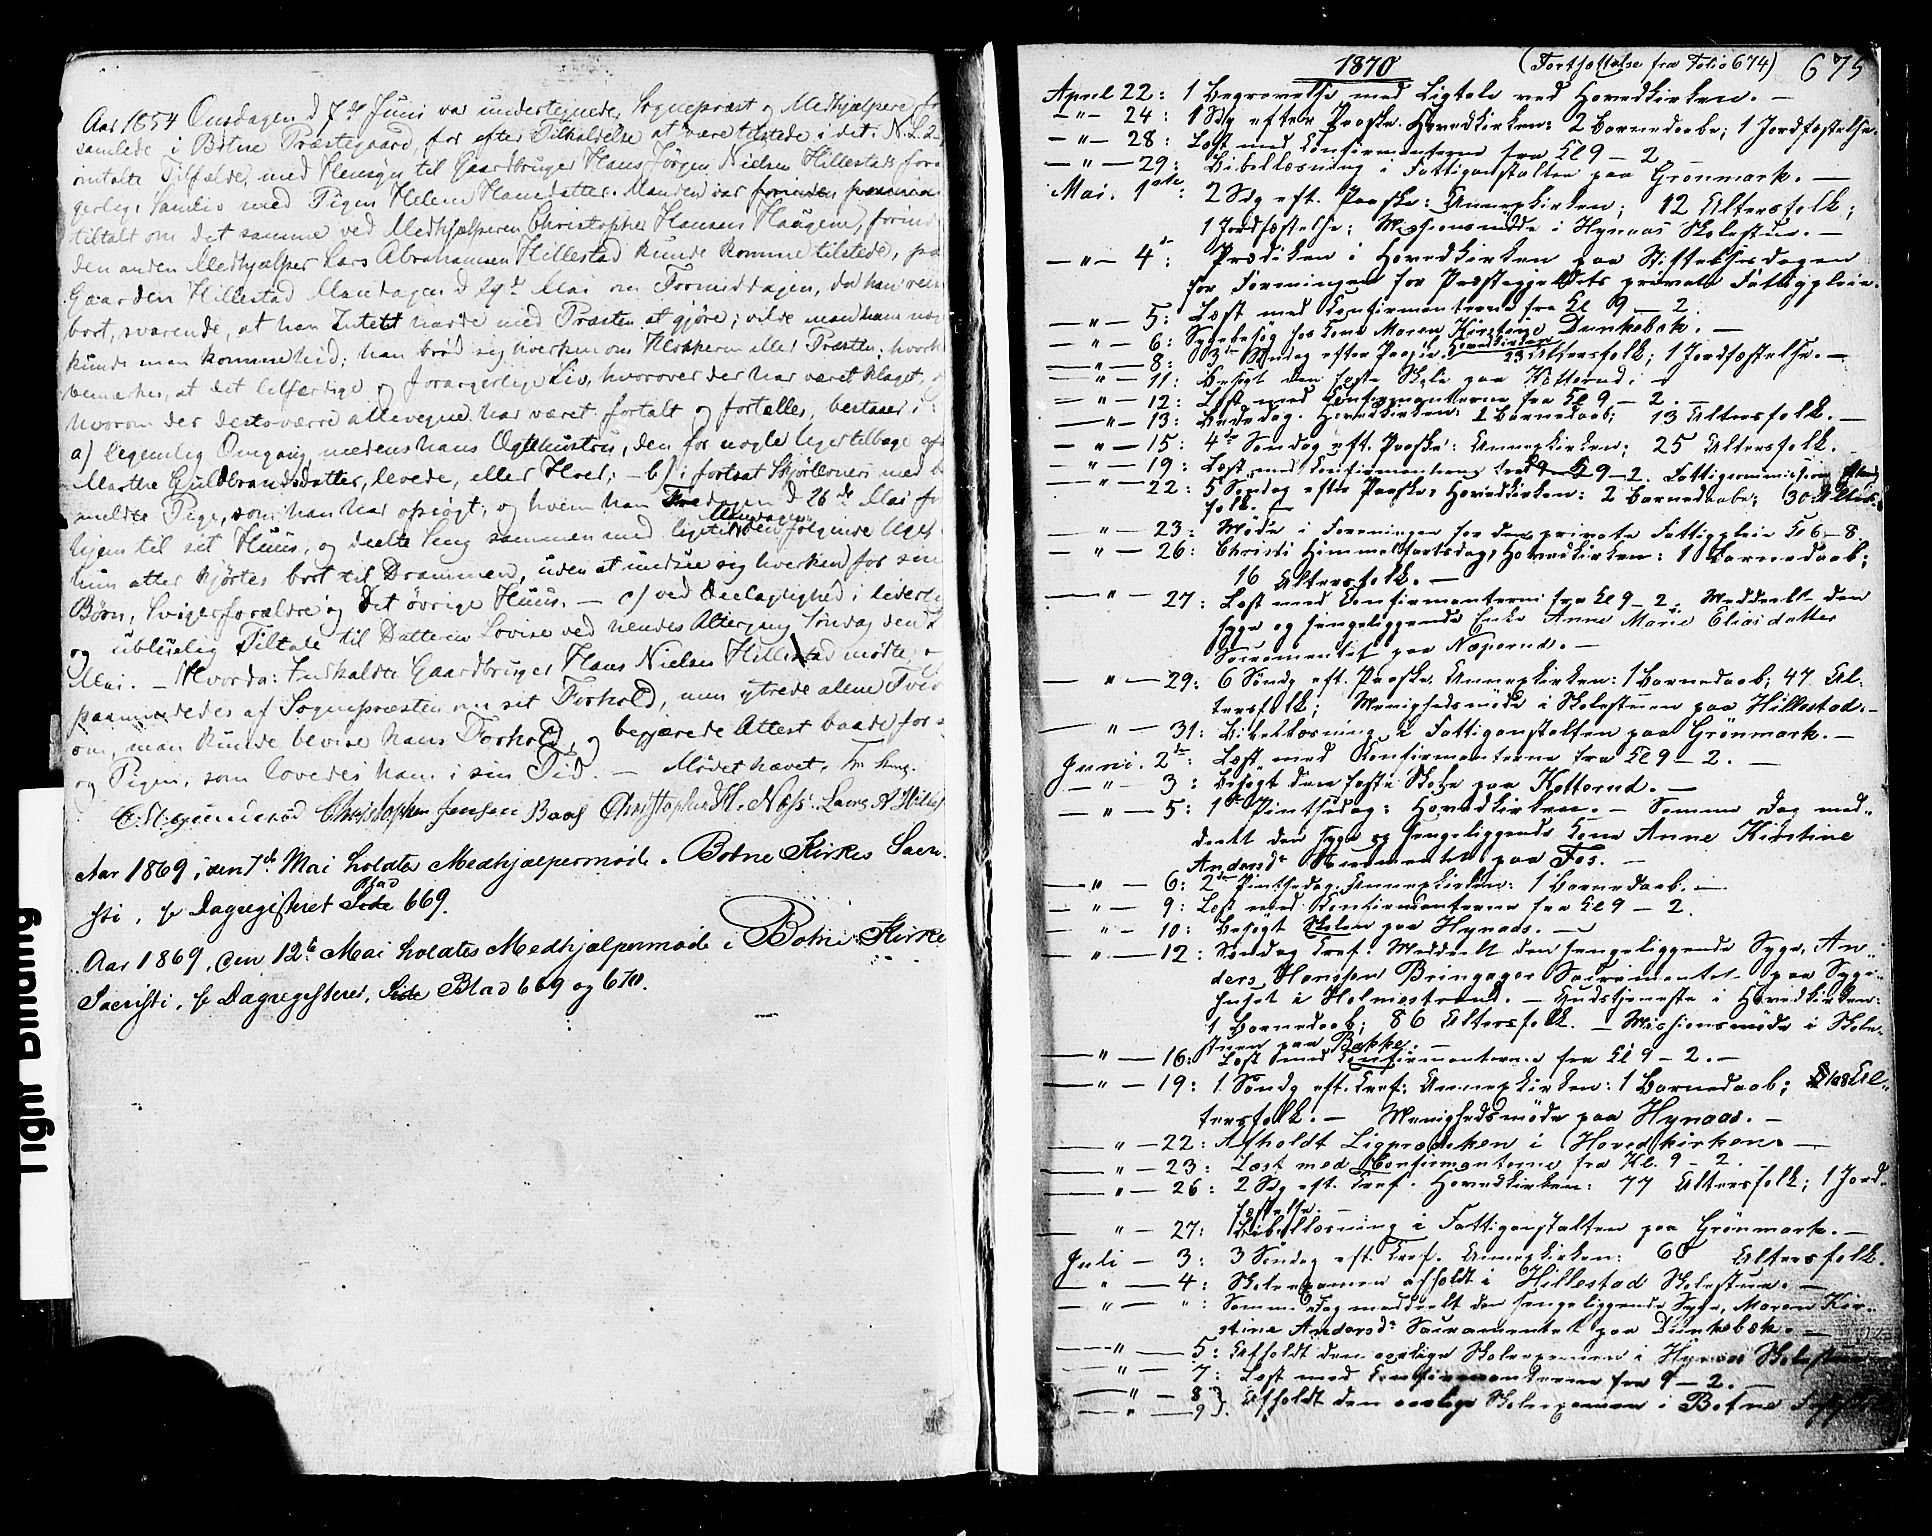 Aar 1854 Onsdagen d 7de Juni var undertegnede, Sognepræst og Medhjælpere
samlede i Botne Præstegaard, for efter Tilkaldelse at være tilstede i det i N. L. 2
omtalte Tilfælde, med Hensyn til Gaardbruger Hans Jørgen Nielsen Hillestads
gerlig Samliv med Pigen Helene Hansdatter. Manden var
tiltalt om det samme ved Medhjælperen Christopher Hansen Haugen,
den anden Medhjælper Lars Abrahamsen Hillestad kunde komme tilstede, paa
Gaarden Hillestad Mandagen d 29de Mai om Formiddagen, da han
bort, svarende, at han Intet havde med Præsten at gjøre; vilde man ham noget
kunde man komme heid; han brød sig hverken om Klokkeren eller Præsten;
bemærkes, at det letfærdige og forargerlige Liv, hvorover der har været klaget,
hvorom der desto værre allevegne har været fortalt og fortælles, bestaaer i:
a) legemlig Omgang, medens hans Ægtehustru, den for nogle Uger tilbage
Marthe Guldbrandsdatter, levede, eller Hoer; – b) i fortsat Skjørlevnet med
meldte Pige, som han har opsøgt, og hvem han Fredagen d 26de Mai
hjem til sit Huus, og deelte Seng sammen med ligetil Mandagen den følgende Uge,
hun atter kjørtes bort til Drammen, uden at undsee sig hverken for sine
Børn, Svigerforældre og det øvrige Huus. – c) ved Deelagtighed i
og ublufelig Tiltale til Datteren Lovise ved hendes Altergang Søndag den
Mai. – Hvorda: Indkaldte Gaardbruger Hans Nielsen Hillestad mødte
paamindedes af Sognepræsten om sit Forhold, men ytrede alene Tvivl
om, man kunde bevise hans Forhold, og begjærede Attest baade for
og Pigen, som lovedes ham i sin Tid. – Mødet hævet.
Christophen Jensen Baas Christopher H. Næss. Laers A Hillest
Aar 1869, den 7de Mai holdtes Medhjælpermøde i Botne Kirkes Sacri-
sti, se Dagregistret Side Blad 669.
Aar 1869, den 12te Mai holdtes Medhjælpermøde i Botne Kirkes
Sacristi, se Dagregisteret, Side Blad 669 og 670.
1870 (Fortsættelse fra Folio 674) 675
April 22: 1 Begravelse med Ligtale ved Hovedkirken. –
– " – 24: 1 Sdg efter Paaske. Hovedkirken: 2 Barnedaabe; 1 Jordfæstelse.
– " – 28: Læst med Confirmanterne fra Kl 9 – 2
– " – 29: Bibellæsning i Fattiganstalten paa Grønmark. –
Mai. 1ste: 2 Sdg eft. Paaske: Annexkirken; 12 Altersfolk;
1 Jordfæstelse; Missionsmøde i Hynaas Skolestue. –
– " – 4: Prædiken i Hovedkirken paa Stiftelsesdagen
for Foreningen for Præstegjeldets private Fattigpleie.
– " – 5: Læst med Confirmanterne fra Kl 9 – 2.
– " – 6: Sygebesøg hos Kone Maren Kirstine Dunkebæk. –
– " – 8: 3die Søndag efter Paaske. Hovedkirken 23 Altersfolk; 1 Jordfæstelse. –
– " – 11: Besøgt den faste Skole paa Kotterud. –
– " – 12: Læst med Confirmanterne fra Kl 9 – 2. –
– " – 13: Bededag. Hovedkirken: 2 Barnedaab; 13 Altersfolk. –
– " – 15: 4de Søndag eft. Paaske: Annexkirken; 25 Altersfolk.
– " – 19: Læst med Confirmanterne fra Kl 9 – 2. Fattigcommission
– " – 22: 5 Søndag efter Paaske: Hovedkirken: 2 Barnedaabe; 30 Alters-
folk. –
– " – 23: Møde i Foreningen for den private Fattigpleie Kl 6 – 8.
– " – 26: Christi Himmelfartsdag, Hovedkirken: 1 Barnedaab;
16 Altersfolk. –
– " – 27: Læst med Confirmanterne fra Kl 9 – 2. Meddeelt den
syge og sengeliggende Enke Anne Marie Eliasdatter
Sacramentet paa Næperud. –
– " – 29: 6 Søndg eft. Paaske. Annexkirken: 1 Barnedaab; 47 Al-
tersfolk; Menighedsmøde i Skolestuen paa Hillestad. –
– " – 31: Bibellæsning i Fattiganstalten paa Grønmark. –
Juni. 2: Læst med Confirmanterne fra Kl 9 – 2. –
– " – 3: Besøgt den faste Skole paa Kotterud. –
– " – 5: 1ste Pintsedag: Hovedkirken. – Samme Dag med-
deelt den syge og sengeliggende Kone Anne Kirstine
Andersdr Sacramentet paa Fos. –
– " – 6: 2den Pintsedag: Annexkirken: 1 Barnedaab. –
– " – 9: Læst med Confirmanterne fra Kl 9 – 2.
– " – 10: Besøgt Skolen paa Hynaas. –
– " – 12: Søndag Tref. Meddeelt den sengeliggende Syge, An-
ders Hanssen Bringager Sacramentet paa Syge-
huset i Holmestrand. – Gudstjeneste i Hovedkirken:
1 Barnedaab; 86 Altersfolk. – Missionsmøde i Skole-
stuen paa Bakke. –
– " – 16: Læst med Confirmanterne fra Kl 9 – 2. –
– " – 19: 1 Søndg eft. Tref: Annexkirken: 1 Barnedaab; 108 Al-
tersfolk. – Menighedsmøde paa Hynaas. –
– " – 22: Afholdt Ligprædiken i Hovedkirken. –
– " – 23: Læst med Confirmanterne fra Kl. 9 – 2.
– " – 26: 2 Sdg eft. Tref. Hovedkirken: 77 Altersfolk; 1 Jord-
fæstelse. –
– " – 27: Bibellæsning i Fattiganstalten paa Grønmark. –
Juli – 3: 3 Søndag eft. Tref. Annexkirken: 60 Altersfolk.
– " – 4: Skoleexamen afholdt i Hillestad Skolestue. –
– " – ": Samme Dag meddeelt den sengeliggende Syge, Maren Kir-
stine Andersdr Sacramentet paa Dunkebæk. –
– " – 5: Afholdt den aarlige Skoleexamen i Hynaas Skolestue
– " – 7: Læst med Confirmanterne fra 9 – 2. –
– " – 8 }
– " – 9 }. Afholdt den aarlige Skoleexamen i Botne
Tight Binding